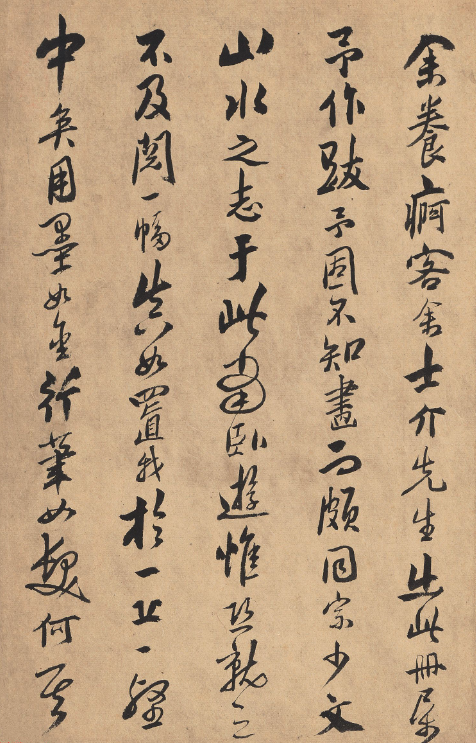 余養痾客舍士介先生出此冊屬
予作跋予固不知畫而頗同宗少文
山水之志于此當臥遊惟恐就之
不及閱一幅嘗如置我於一丘一壑
中矣用墨如金行筆如幾何其